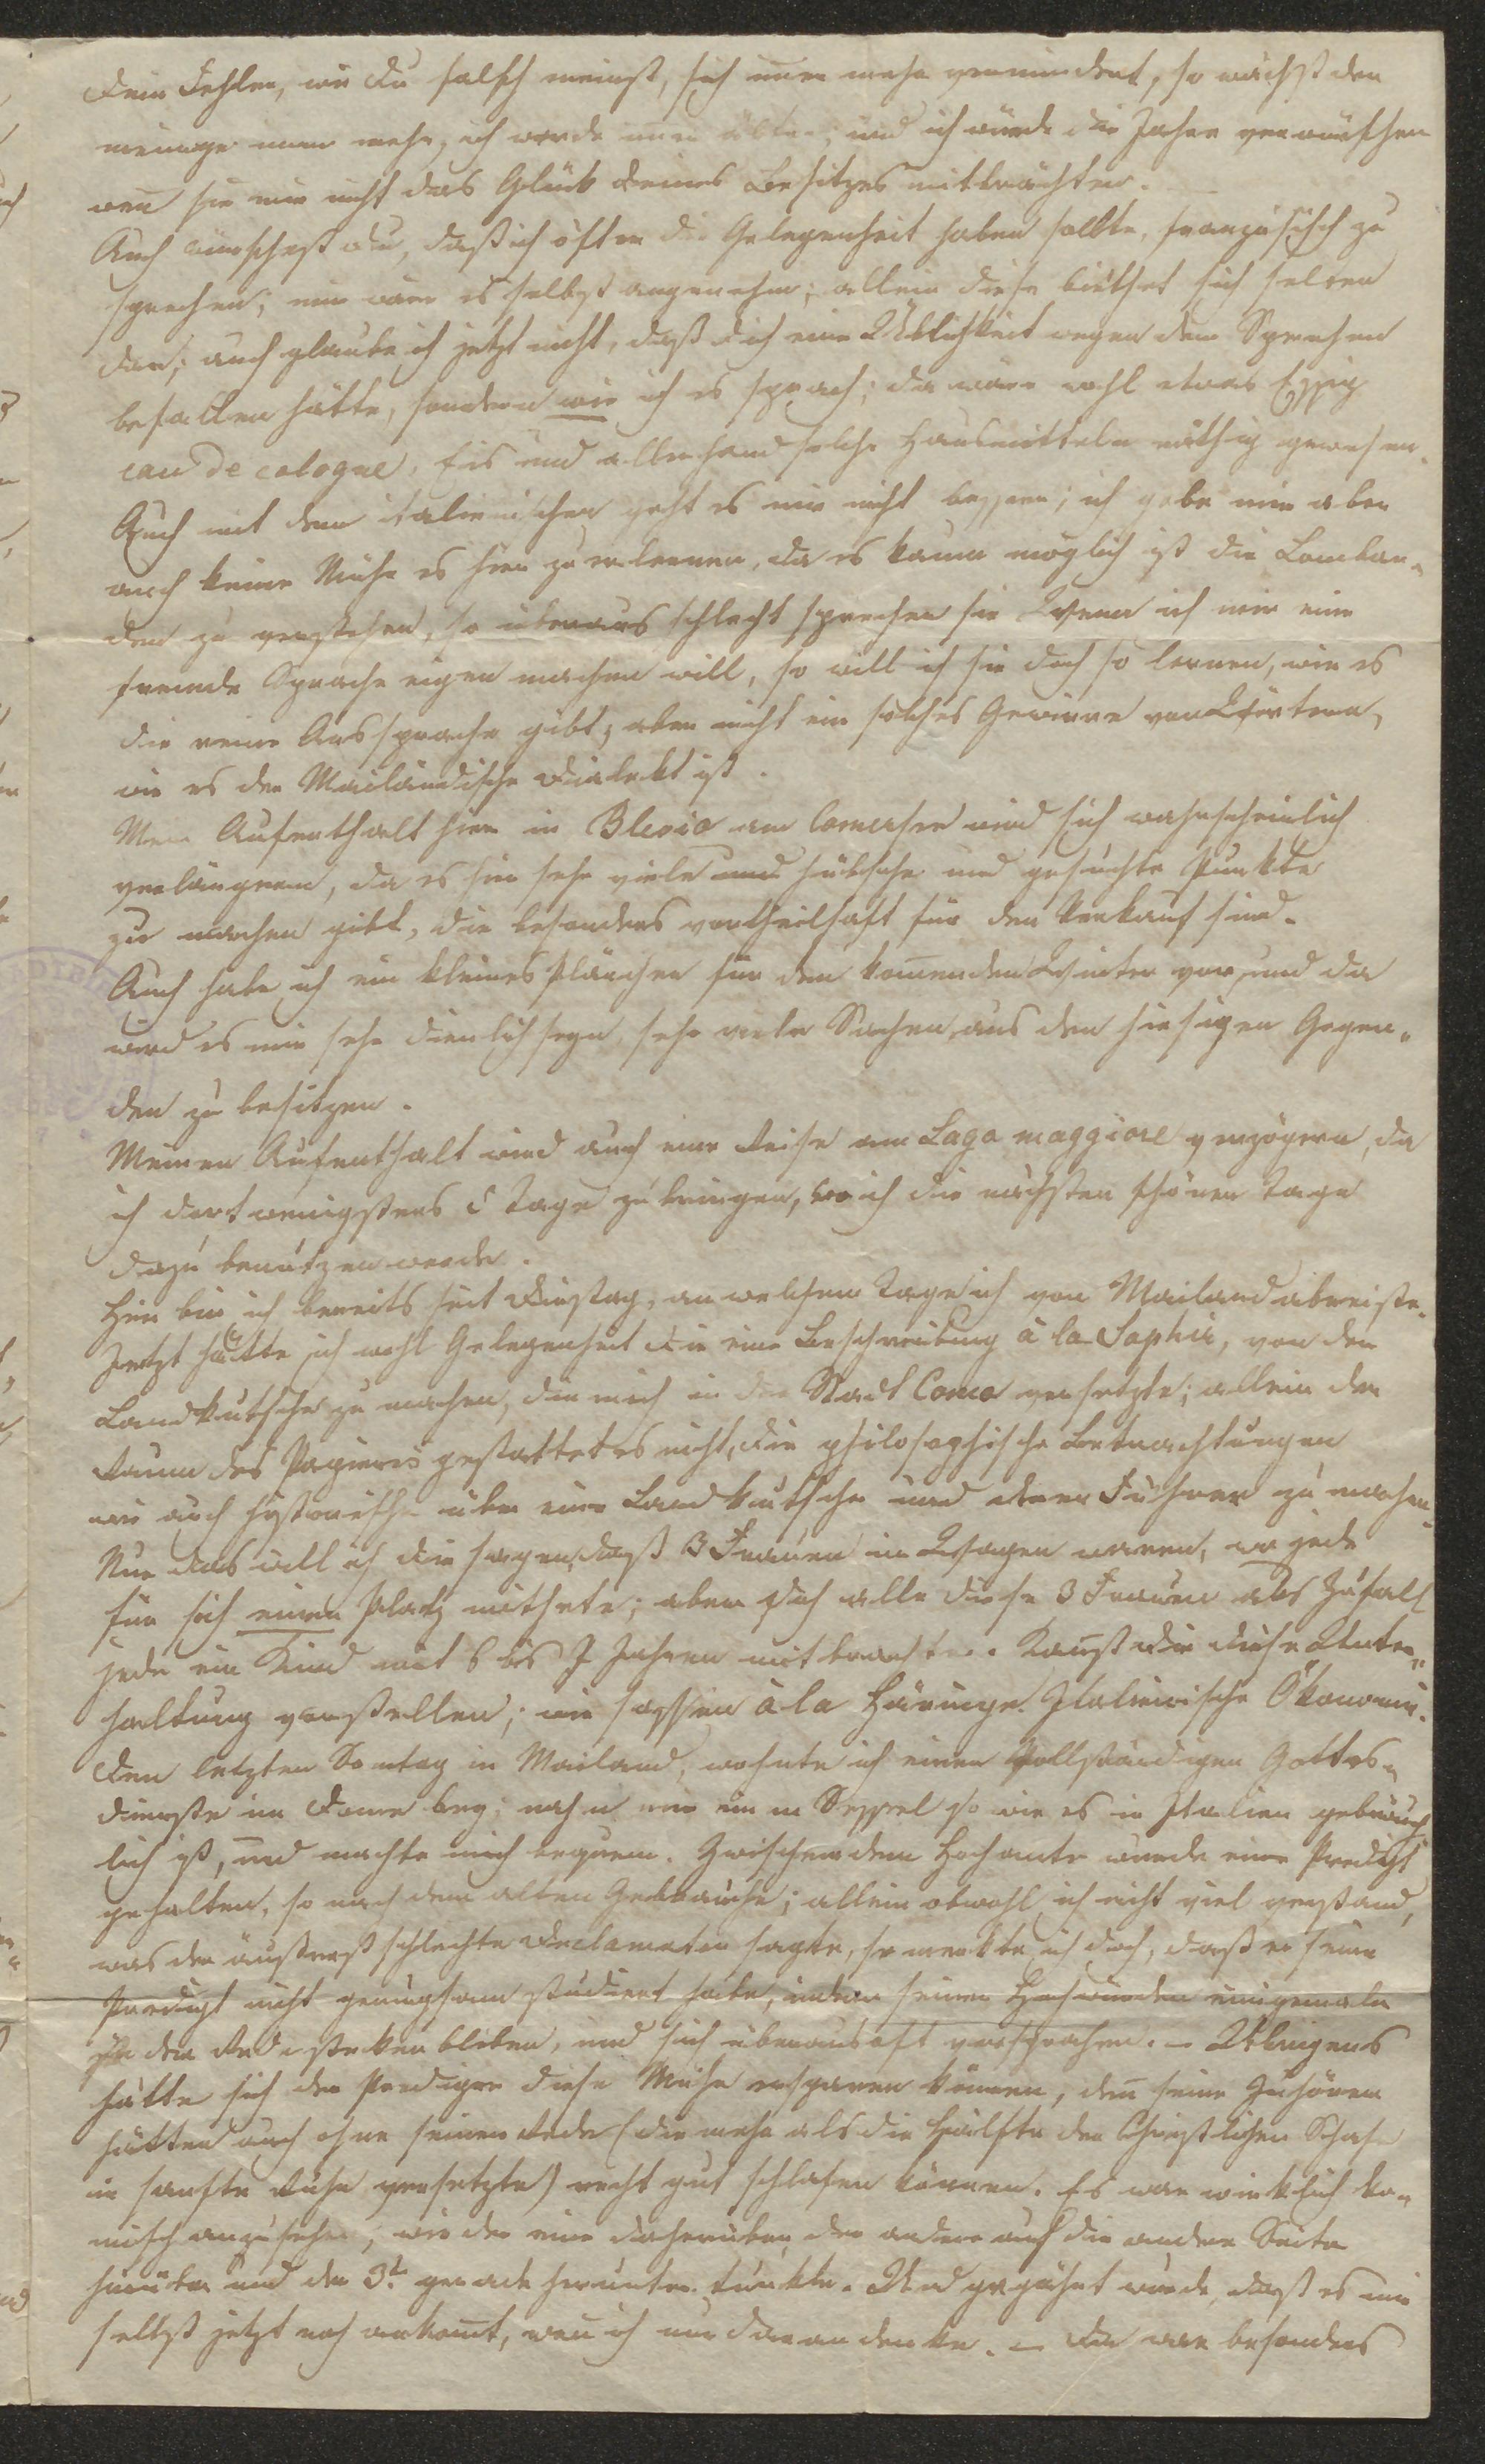 Dein Fehler, wie du falsch meinst, sich im̅er mehr vermindert, so wächst der
meinige im̅er mehr, ich werde im̅er älter; und ich würde die Jahre verwünschen
wen̅ sie mir nicht das Glück deines Besitzes mitbrächten.
Auch wünschest du, daß ich öfter die Gelegenheit haben sollte, französisch zu
sprechen; mir wäre es selbst angenehm; allein diese biethet sich selten
dar; auch glaube ich jetzt nicht, daß dich eine Üblichkeit wegen dem Sprechen
befallen hätte, sondern wie ich es sprach; da wäre wohl etwas Essig
eau de cologne, Eis und allerhand solche Hausmitteln nöthig gewesen.
Auch mit dem italienischen geht es mir nicht besser; ich gebe mir aber
auch keine Mühe es hier zu erlernen, da es kaum möglich ist die Lombar„
den zu verstehen, so überaus schlecht sprechen sie. Wenn ich mir eine
fremde Sprache eigen machen will, so will ich sie doch so lernen, wie es
die reine Aussprache gibt, aber nicht ein solches Gewirre von Wörtern,
wie es der Mailändische Dialekt ist.
Mein Aufenthalt hier in Blevio am Comersee wird sich wahrscheinlich
verlängern, da es hier sehr viele und hübsche und gesuchte Punkte
zu machen gibt, die besonders vortheilhaft für den Verkauf sind.
Auch habe ich ein kleines Plänchen für den kom̅enden Winter vor, und da
wird es mir sehr dienlich seyn, sehr viele Sachen aus den hiesigen Gegen„
den zu besitzen.
Meinen Aufenthalt wird auch eine Reise am Lago maggiore verzögern, da
ich dort wenigstens 5 Tage zubringen, wo ich die nächsten schönen Tage
dazu benützen werde.
Hier bin ich bereits seit Dienstag, an welchem Tage ich von Mailand abreiste.
Jetzt hätte ich wohl Gelegenheit dir eine Beschreibung à la Saphir, von der
Landkutsche zu machen, die mich in die Stadt Como versetzte; allein der
Raum des Papieres gestattet es nicht, dir philosophische Betrachtungen
wie auch hystorische über eine Landkutsche und deren Führer zu machen.
Nur das will ich dir sagen, daß 3 Frauen im Wagen waren, wo jede
für sich einen Platz miethete; aber doch alle diese 3 Frauen als Zufall
jede ein Kind mit 6 bis 7 Jahren mitbrachten. Kan̅st dir diese Unter„
haltung vorstellen; wir sassen à la Häringe. Italienische Ökonomie.
Den letzten Sontag in Mailand, wohnte ich einen vollständigen Gottes„
dienste im Dome bey; nahm mir einen Sessel so wie es in Italien gebräuch„
lich ist, und machte mich bequem. Zwischen dem Hochamte wurde eine Predigt
gehalten, so nach dem alten Gebrauche; allein obwohl ich nicht viel verstand,
was der äußerst schlechte Declamator sagte, so merkte ich doch, daß er seine
Predigt nicht genugsam studiert habe, indem seiner Hochwürden einigemale
in der Rede stecken blieben, und sich überaus oft versprachen. – Übrigens
hätte sich der Prediger diese Mühe ersparen können, den̅ seine Zuhörer
hätten auch ohne seiner Rede (die mehr als die Hälfte der Christlichen Schafe
in sanfte Ruhe versetzte) recht gut schlafen können. Es war wirklich ko„
misch anzusehen, wie der eine da herüber, der andere auf die andere Seite
hinüber und der 3t gerade herunter tunkte. Und gegähnt wurde, daß es mir
selbst jetzt noch ankom̅t, wen̅ ich nur daran denke. – Da war besonders